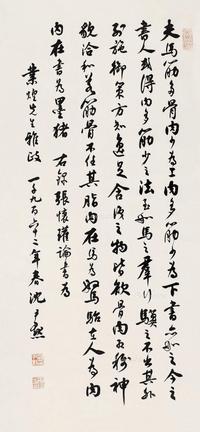 夫馬筋多骨肉少為上肉多筋少為下書亦如之今之
書人或得肉多筋少之法至如馬之羣行驥之不出其外
列施銜策方知逸足含識之物皆欲骨肉相稱神
貌洽和若筋骨不任其脂肉在馬為駑駘在人為肉
疾在書為墨猪 右錄張懷瓘論書為
業煌先生雅政 一千九百六十二年春沈尹默